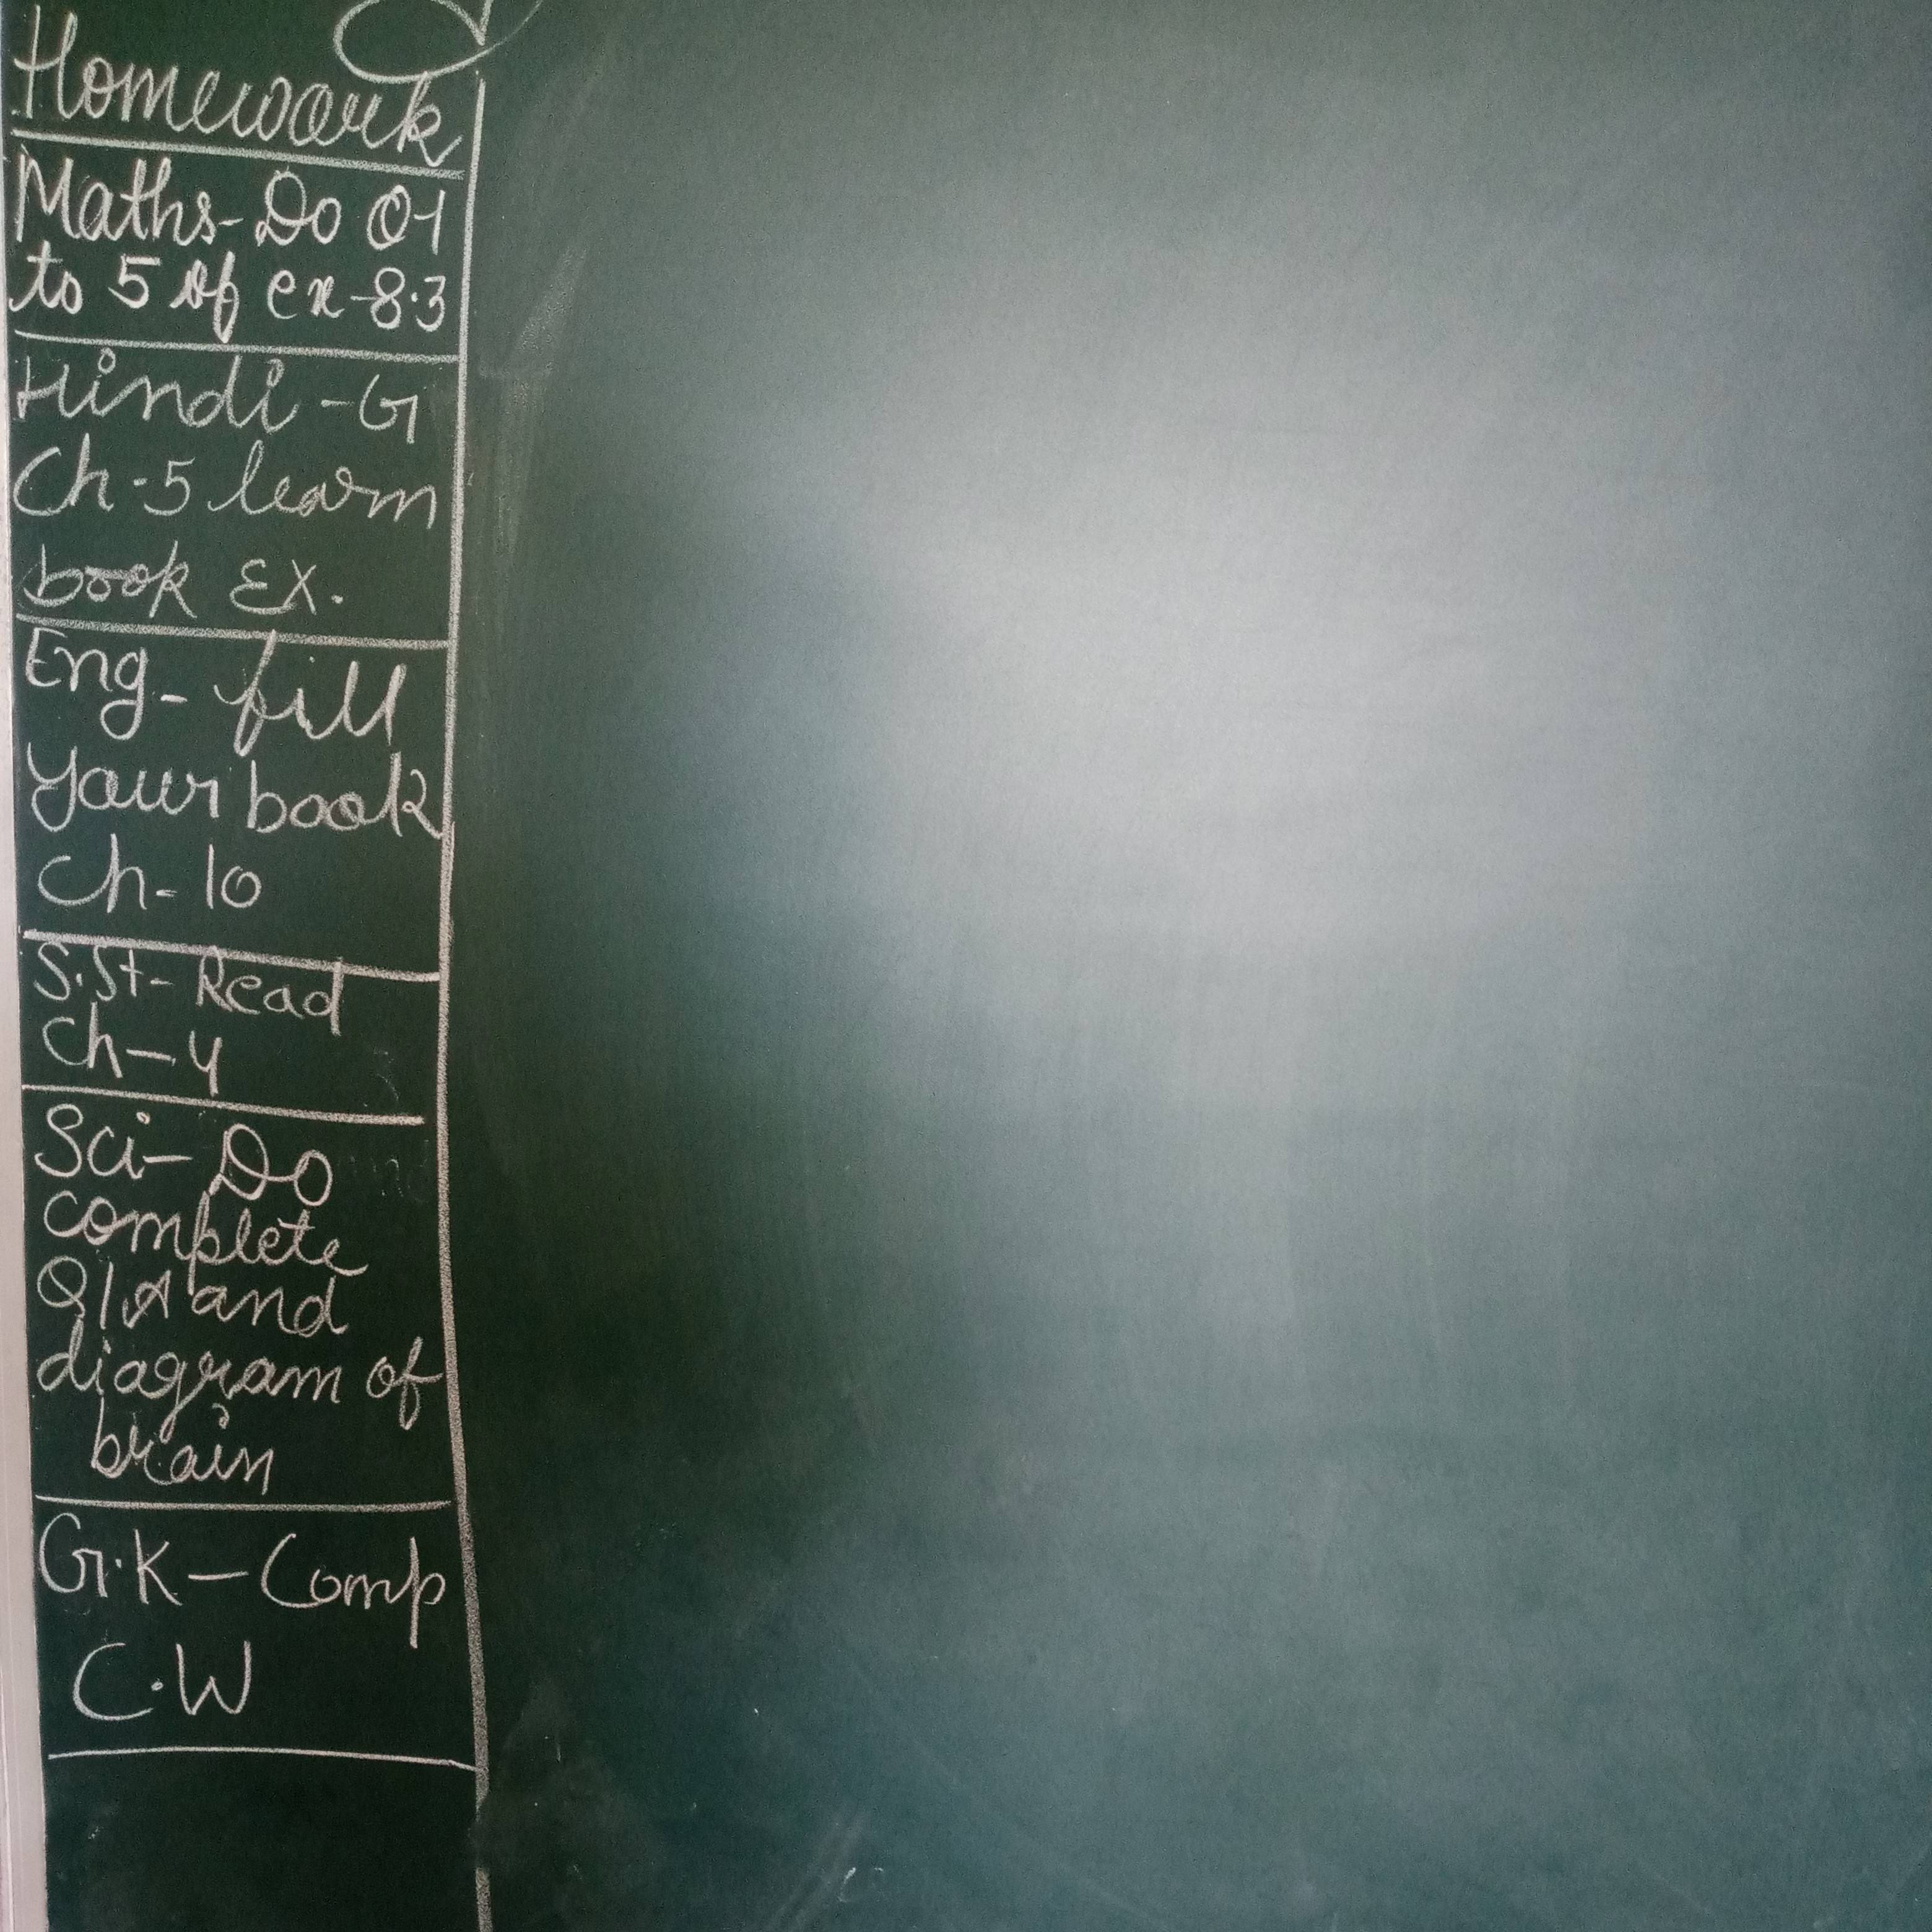 Homework
Maths-Do Q1
to 5 of ex-8.3
Hindi-G
Ch-5 learn
book EX.
Eng- fill
your book
Ch-10
S.St- Read
Ch-4
Sci- Do
complete
Q/A and
diagram of
brain
G.K-Comp
C.W